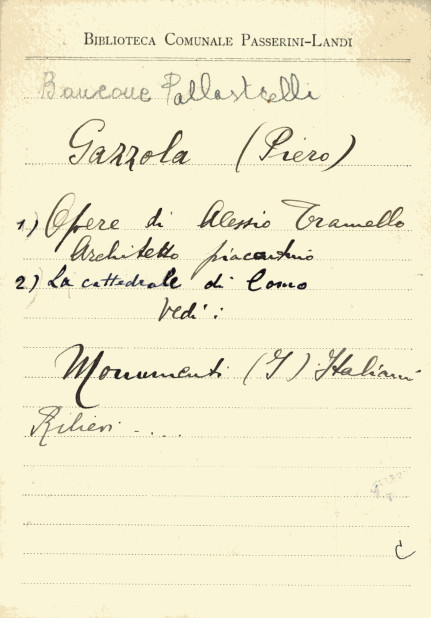 BIBLIOTECA COMUNALE PASSERINI-LANDI
Bancone Pallastrelli
Gazzola (Piero)
1) Opere di Alessio Tramello
Architetto piacentino
2) La cattedrale di Como
Vedi:
Monumenti (I) Italiani
Rilievi ....
C